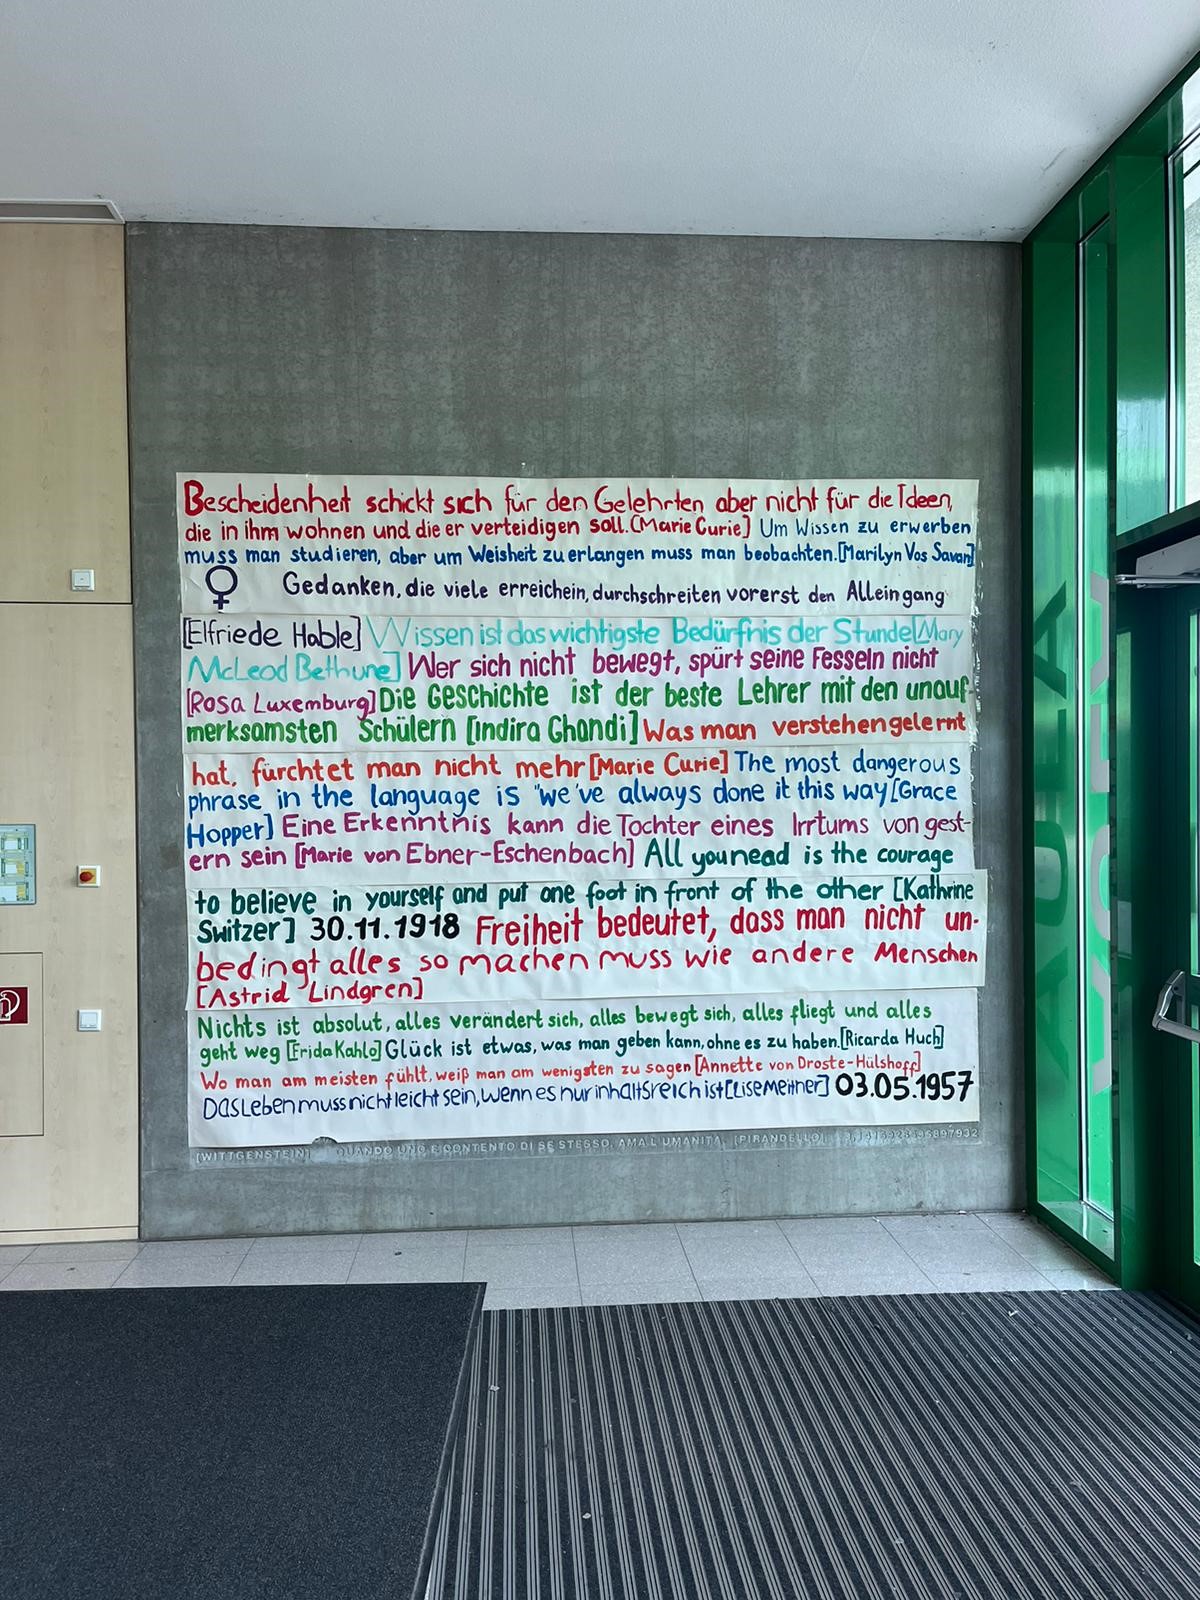 Bescheidenheit schickt sich für den Gelehrten aber nicht für die Ideen,
die in ihm wohnen und die er verteidigen soll.[Marie Curie] Um Wissen zu erwerben
muss man studieren, aber um Weisheit zu erlangen muss man beobachten.[Marilyn Vos Savan]
♀ Gedanken, die viele erreichein, durchschreiten vorerst den Alleingang
[Elfriede Hable] Wissen ist das wichtigste Bedürfnis der Stunde[Mary
McLeod Bethune] Wer sich nicht bewegt, spürt seine Fesseln nicht
[Rosa Luxemburg] Die Geschichte ist der beste Lehrer mit den unauf-
merksamsten Schülern [Indira Ghandi] Was man verstehen gelernt
hat, fürchtet man nicht mehr [Marie Curie] The most dangerous
phrase in the language is "we've always done it this way[Grace
Hopper] Eine Erkenntnis kann die Tochter eines Irrtums von gest-
ern sein [Marie von Ebner-Eschenbach] All you nead is the courage
to believe in yourself and put one foot in front of the other [Kathrine
Switzer] 30.11.1918 Freiheit bedeutet, dass man nicht un-
bedingt alles so machen muss wie andere Menschen
[Astrid Lindgren]
Nichts ist absolut, alles verändert sich, alles bewegt sich, alles fliegt und alles
geht weg [Frida Kahlo] Glück ist etwas, was man geben kann, ohne es zu haben.[Ricarda Huch]
Wo man am meisten fühlt, weiß man am wenigsten zu sagen [Annette von Droste-Hülshoff]
Das Leben muss nicht leicht sein, wenn es nur inhaltsreich ist [Lise Meitner] 03.05.1957
[WITTGENSTEIN] QUANDO UNO E CONTENTO DI SE STESSO, AMA L'UMANITA. [PIRANDELLO]